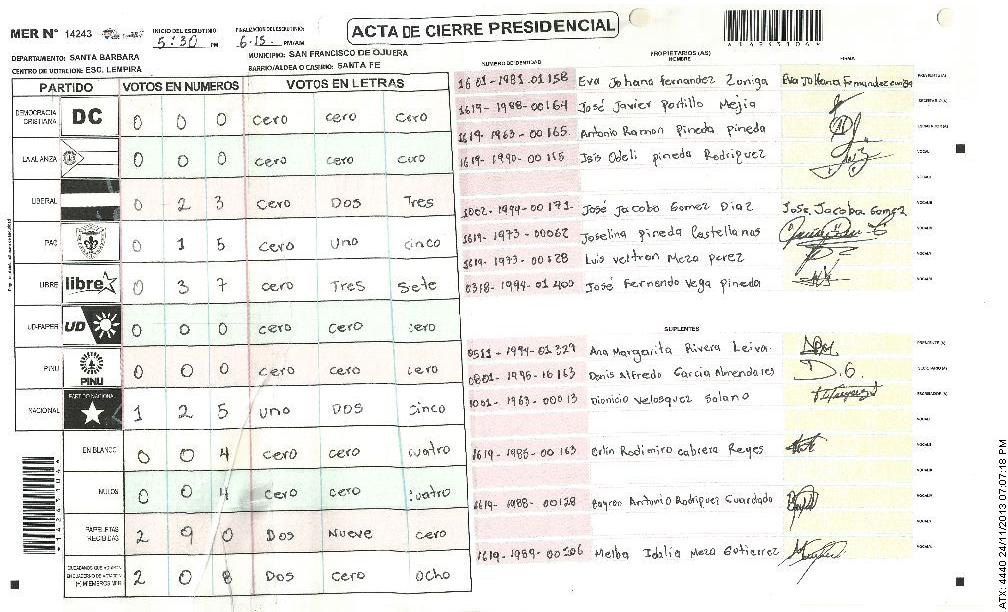 MER N° 14243
INICIO DEL ESCRUTINIO: 5:30 PM
FINALIZACION DE ESCRUTINIO: 6:15 PM/AM
ACTA DE CIERRE PRESIDENCIAL
DEPARTAMENTO: SANTA BARBARA
MUNICIPIO: SAN FRANCISCO DE OJUERA
CENTRO DE VOTACION: ESC. LEMPIRA
BARRIO/ALDEA O CASERIO: SANTA FE
PARTIDO VOTOS EN NUMEROS VOTOS EN LETRAS
DEMOCRACIA CRISTIANA DC 0 0 0 cero cero cero
LA ALANZA 0 0 0 cero cero cero
LIBERAL 0 2 3 cero Dos Tres
PAC 0 1 5 cero uno cinco
LIBRE libre 0 3 7 cero Tres Sete
UD-FAPER UD 0 0 0 cero cero cero
PINU PINU 0 0 0 cero cero cero
NACIONAL PARTIDO NACIONAL 1 2 5 uno Dos cinco
EN BLANCO 0 0 4 cero cero cuatro
NULOS 0 0 4 cero cero cuatro
PAPELETAS RECIBIDAS 2 9 0 Dos Nueve cero
CIUDADANOS QUE VOTARON EN CUADERNO DE VOTACION (+) MIEMBROS MER 2 0 8 Dos cero ocho
PROPIETARIOS (AS)
NUMERO DE IDENTIDAD NOMBRE FIRMA
1601-1981-01158 Eva Johana fernandez Zuniga Eva Johana Fernandez zuniga PRESIDENTE (A)
1619-1988-00164 José Javier Portillo Mejia SECRETARIO (A)
1619-1963-00165. Antonio Ramon pineda pineda ESCRUTADOR (A)
1619-1990-00115 Isis Odeli pineda Rodriguez VOCAL I
VOCAL II
1002-1994-00171 José Jacobo Gomez Diaz Jose Jacobo Gomez VOCAL III
1619-1973-00062 Joselina pineda Castellanos VOCAL IV
1619-1973-00128 Luis veltran Meza perez VOCAL V
0318-1994-01400 José Fernando Vega pineda VOCAL VI
SUPLENTES
0511-1994-01329 Ana Margarita Rivera Leiva. PRESIDENTE (A)
0801-1995-16163 Denis Alfredo Garcia Almendares D.G. SECRETARIO (A)
1001-1963-00013 Dionicio Velasquez Solano ESCRUTADOR (A)
VOCAL I
1619-1985-00163 Erlin Rodimiro cabrera Reyes VOCAL II
VOCAL III
1619-1988-00128 Bayron Antonio Rodriguez Guardado VOCAL IV
VOCAL V
1619-1989-00206 Melba Idalia Meza Gutierrez VOCAL VI
ATX: 4440 24/11/2013 07:07:18 PM